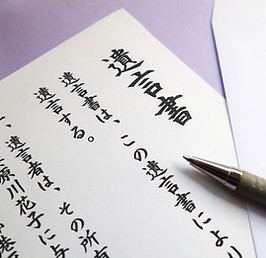 遺言書
遺言書は、この遺言書により
遺言する。
一、遺言者は、その所有
川花子に与